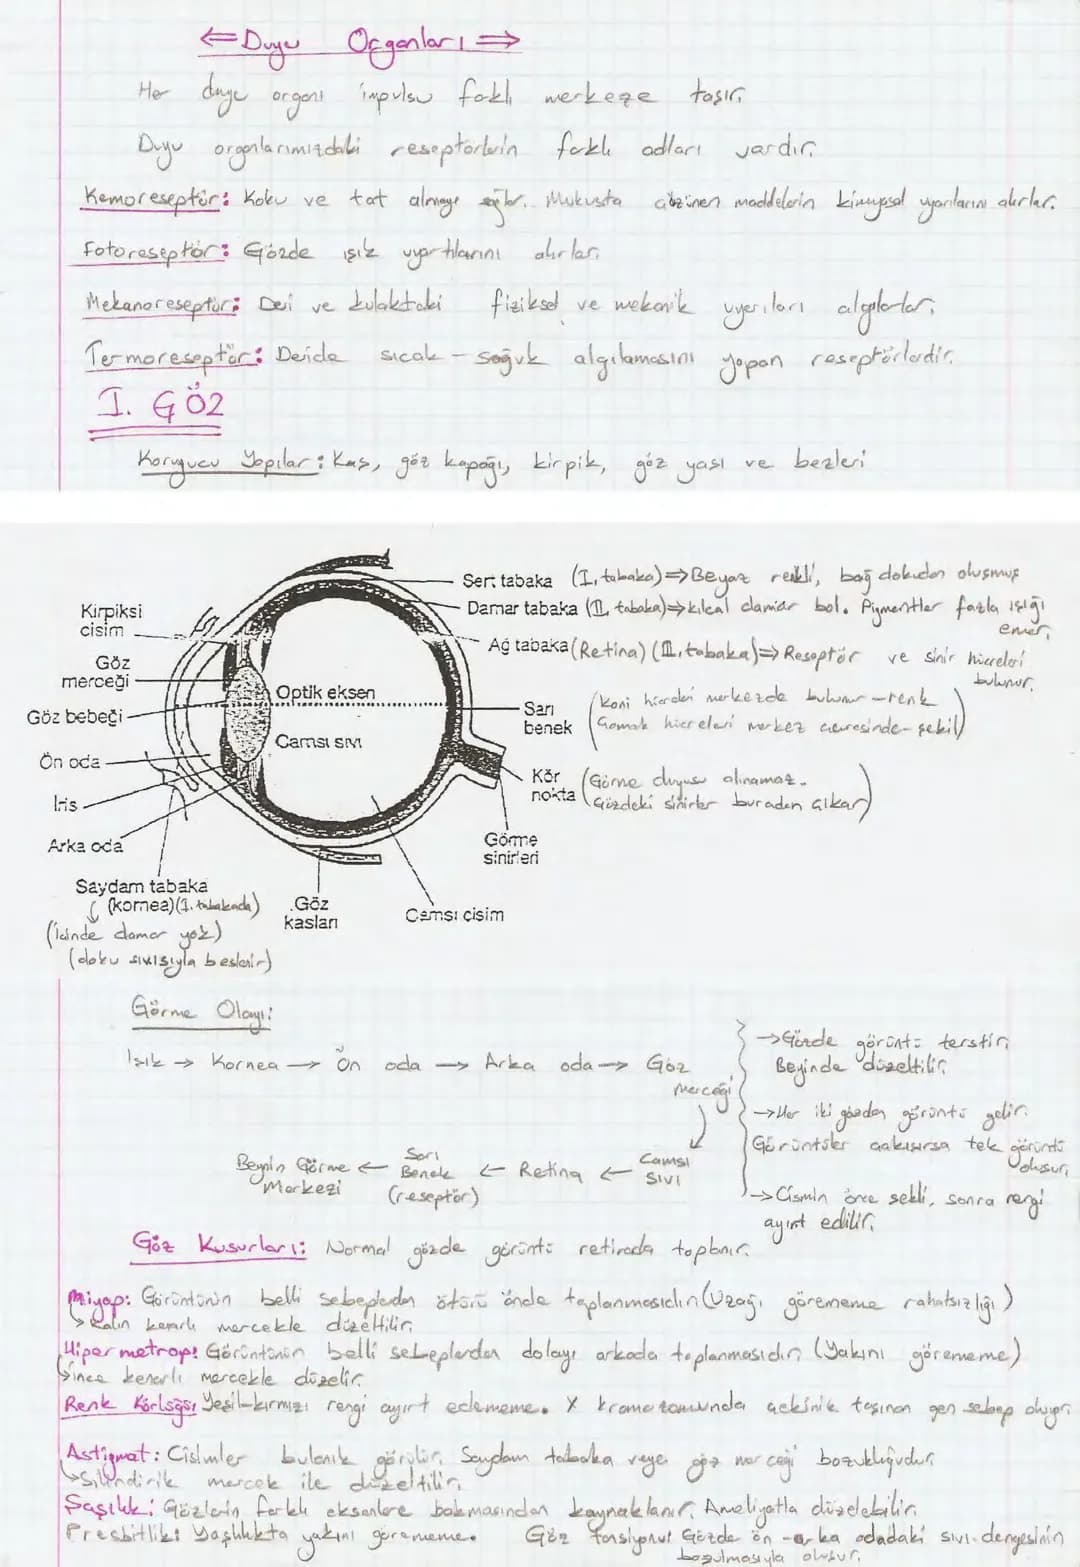 ⇐ Duyu Organları ⇒
Her duyu organı impulsu farklı merkeze taşır.
Duyu organlarımızdaki reseptörlerin farklı adları vardır.
Kemoreseptör: Koku ve tat almayı sağlar. Mukusta çözünen maddelerin kimyasal uyarılarını alırlar.
Fotoreseptör: Gözde ışık uyartılarını alırlar.
Mekanoreseptör: Deri ve kulaktaki fiziksel ve mekanik uyarıları algılarlar.
Termoreseptör: Deride sıcak - soğuk algılamasını yapan reseptörlerdir.
I. GÖZ
Koruyucu Yapılar: Kaş, göz kapağı, kirpik, göz yaşı ve bezleri
Sert tabaka (I. tabaka) ⇒ Beyaz renkli, bağ dokudan oluşmuş
Damar tabaka (II. tabaka) ⇒ kılcal damar bol. Pigmentler fazla ışığı
emer.
Ağ tabaka (Retina) (III. tabaka) ⇒ Reseptör ve sinir hücreleri
bulunur.
Kirpiksi
cisim
Göz
merceği
Göz bebeği
Ön oda
İris
Arka oda
Optik eksen
Camsı sıvı
Sarı
benek
(Koni hücreleri merkezde bulunur - renk
Çomak hücreleri merkez çevresinde - şekil)
Kör
nokta
(Görme duyusu alınamaz.
Gözdeki sinirler buradan çıkar)
Görme
sinirleri
Saydam tabaka
(kornea) (I. tabakada)
(İçinde damar yok)
(doku sıvısıyla beslenir)
Göz
kasları
Camsı cisim
Görme Olayı:
Işık → Kornea → Ön oda → Arka oda → Göz
merceği
Camsı
sıvı
← Retina ← Sarı
Benek
(reseptör)
← Beyin Görme
Merkezi
→ Gözde görüntü terstir.
Beyinde düzeltilir.
→ Her iki gözden görüntü gelir.
Görüntüler çakışırsa tek görüntü
oluşur.
→ Cismin önce şekli, sonra rengi
ayırt edilir.
Göz Kusurları: Normal gözde görüntü retinada toplanır.
Miyop: Görüntünün belli sebeplerden ötürü önde toplanmasıdır. (Uzağı görememe rahatsızlığı)
↳ Kalın kenarlı mercekle düzeltilir.
Hipermetrop: Görüntünün belli sebeplerden dolayı arkada toplanmasıdır. (Yakını görememe)
↳ ince kenarlı mercekle düzelir.
Renk Körlüğü: Yeşil-kırmızı rengi ayırt edememe. X kromozomunda çekinik taşınan gen sebep oluyor.
Astigmat: Cisimler bulanık görülür. Saydam tabaka veya göz merceği bozukluğudur.
↳ Silindirik mercek ile düzeltilir.
Şaşılık: Gözlerin farklı eksenlere bakmasından kaynaklanır. Ameliyatla düzelebilir.
Presbitlik: Yaşlılıkta yakını görememe. Göz Tansiyonu: Gözde ön - arka odadaki sıvı dengesinin
bozulmasıyla oluşur.